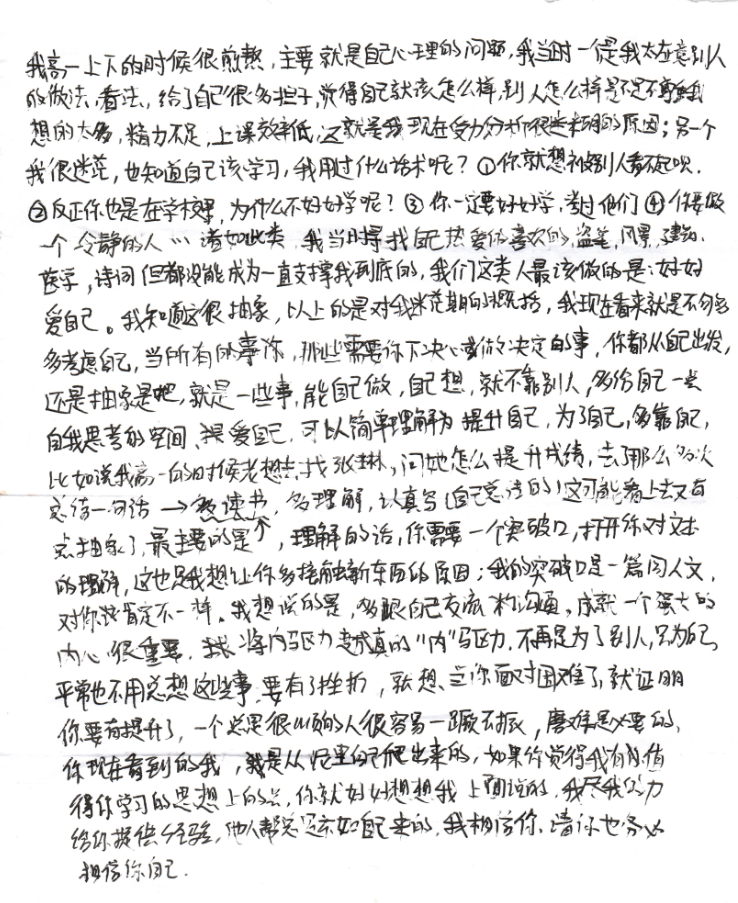 我高一上下的时候很煎熬,主要就是自己心理的问题,我当时一个是我太在意别人
的做法,看法,给了自己很多担子,觉得自己就该怎么样,别人怎么样是不是不
想的太多,精力不足,上课效率低,这就是我现在受力分析很迷的原因;另一个
我很迷茫,也知道自己该学习,我用过什么话术呢?①你就想被别人看不起呗.
②反正你也是在学校里,为什么不好好学呢?③你一定要好好学,考过他们④你要做
一个冷静的人…诸如此类,我当时寻找自己热爱的喜欢的,盗笔,风景,
医学,诗词但都没能成为一直支撑我到底的,我们这类人最该做的是:好好
爱自己。我知道这很抽象,以上的是对我迷茫期的概括,我现在看来就是不够
多考虑自己,当所有的事你,那些需要你下决心或做决定的事,你都从自己出发,
还是抽象是吧,就是一些事,能自己做,自己想,就不靠别人,多给自己一些
自我思考的空间、爱自己,可以简单理解为提升自己,为了自己,多靠自己,
比如说我高一的时候老想去找张琳,问她怎么提升成绩,去了那么多次
总结一句话→多读书,多理解,认真写(自己总结的)这可能看上去又有
点抽象了,最主要的是↑,理解的话,你需要一个突破口,打开你对文本
的理解,这也是我想让你多接触新东西的原因;我的突破口是一篇同人文,
对你这肯定不一样。我想说的是,多跟自己交流和沟通,成就一个强大的
内心很重要,我将内驱力变成真的"内"驱力.不再是为了别人,只为自己
平常也不用总想这些事,要有了挫折,就想,当你面对困难了,就证明
你要有提升了,一个总是很顺的人很容易一蹶不振,磨难是必要的,
你现在看到的我,就是从泥里自己爬出来的,如果你觉得我有值
得你学习的思想上的点,你就好好想想我上面说的,我尽我的力
给你提供经验,他人帮总是不如自己来的,我相信你,请你也务必
相信你自己.